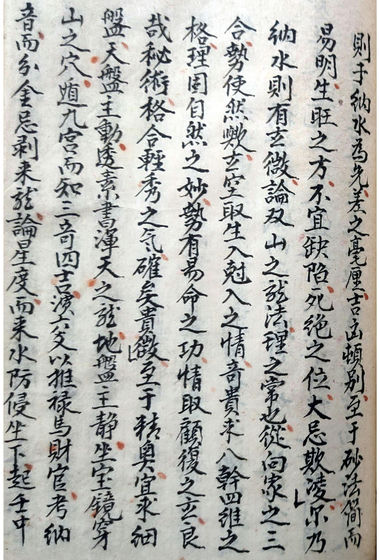 則于納水為先差之毫厘吉凶頓別至于砂法簡而
易明生旺之方不宜缺陷死絕之位大忌欺凌尔乃
納水則有玄微論双山之龍法理之常也從向家之三
合勢使然歟玄空取生入尅入之情奇貴求八幹四維之
格理固自然之妙勢有易命之功情取顧復之玄良
哉秘術格合輕秀之气確矣貴微至于精奧宜求細
盤天盤主動透素書渾天之龍地盤主靜坐宝鏡穿
山之穴遁九宮而知三奇四吉演六爻以推祿馬財官考納
音而分金忌剋來龍論星度而來水防侵坐下起壬中